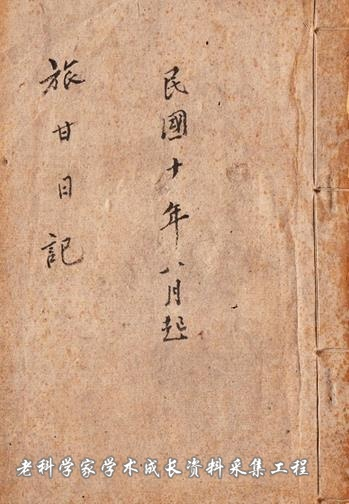 民國十年八月起
旅甘日記
老科学家学术成长资料采集工程